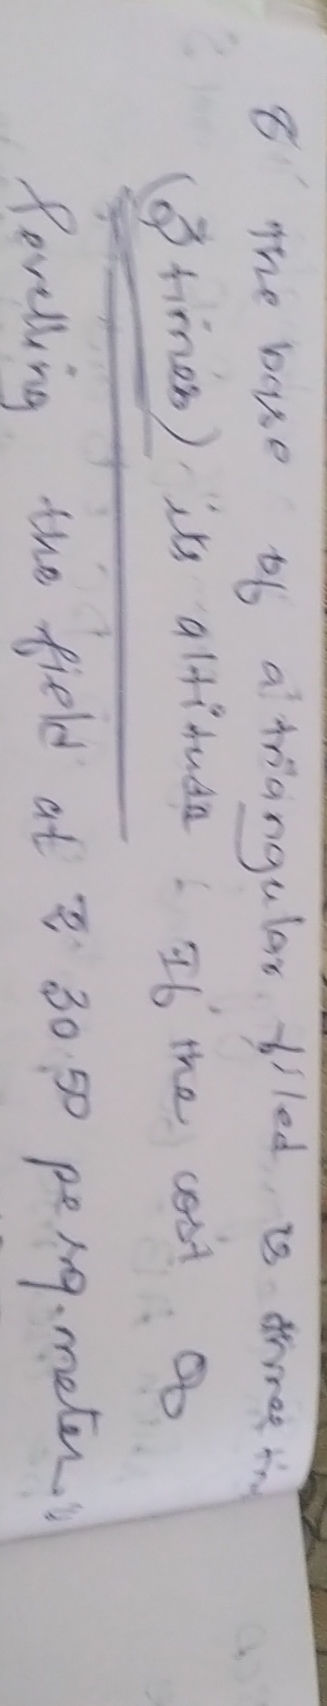 8 The base of a triangular filed is three tim
(3 times) its altitude. If the cost of
levelling the field at ₹ 30.50 per sq. meter is